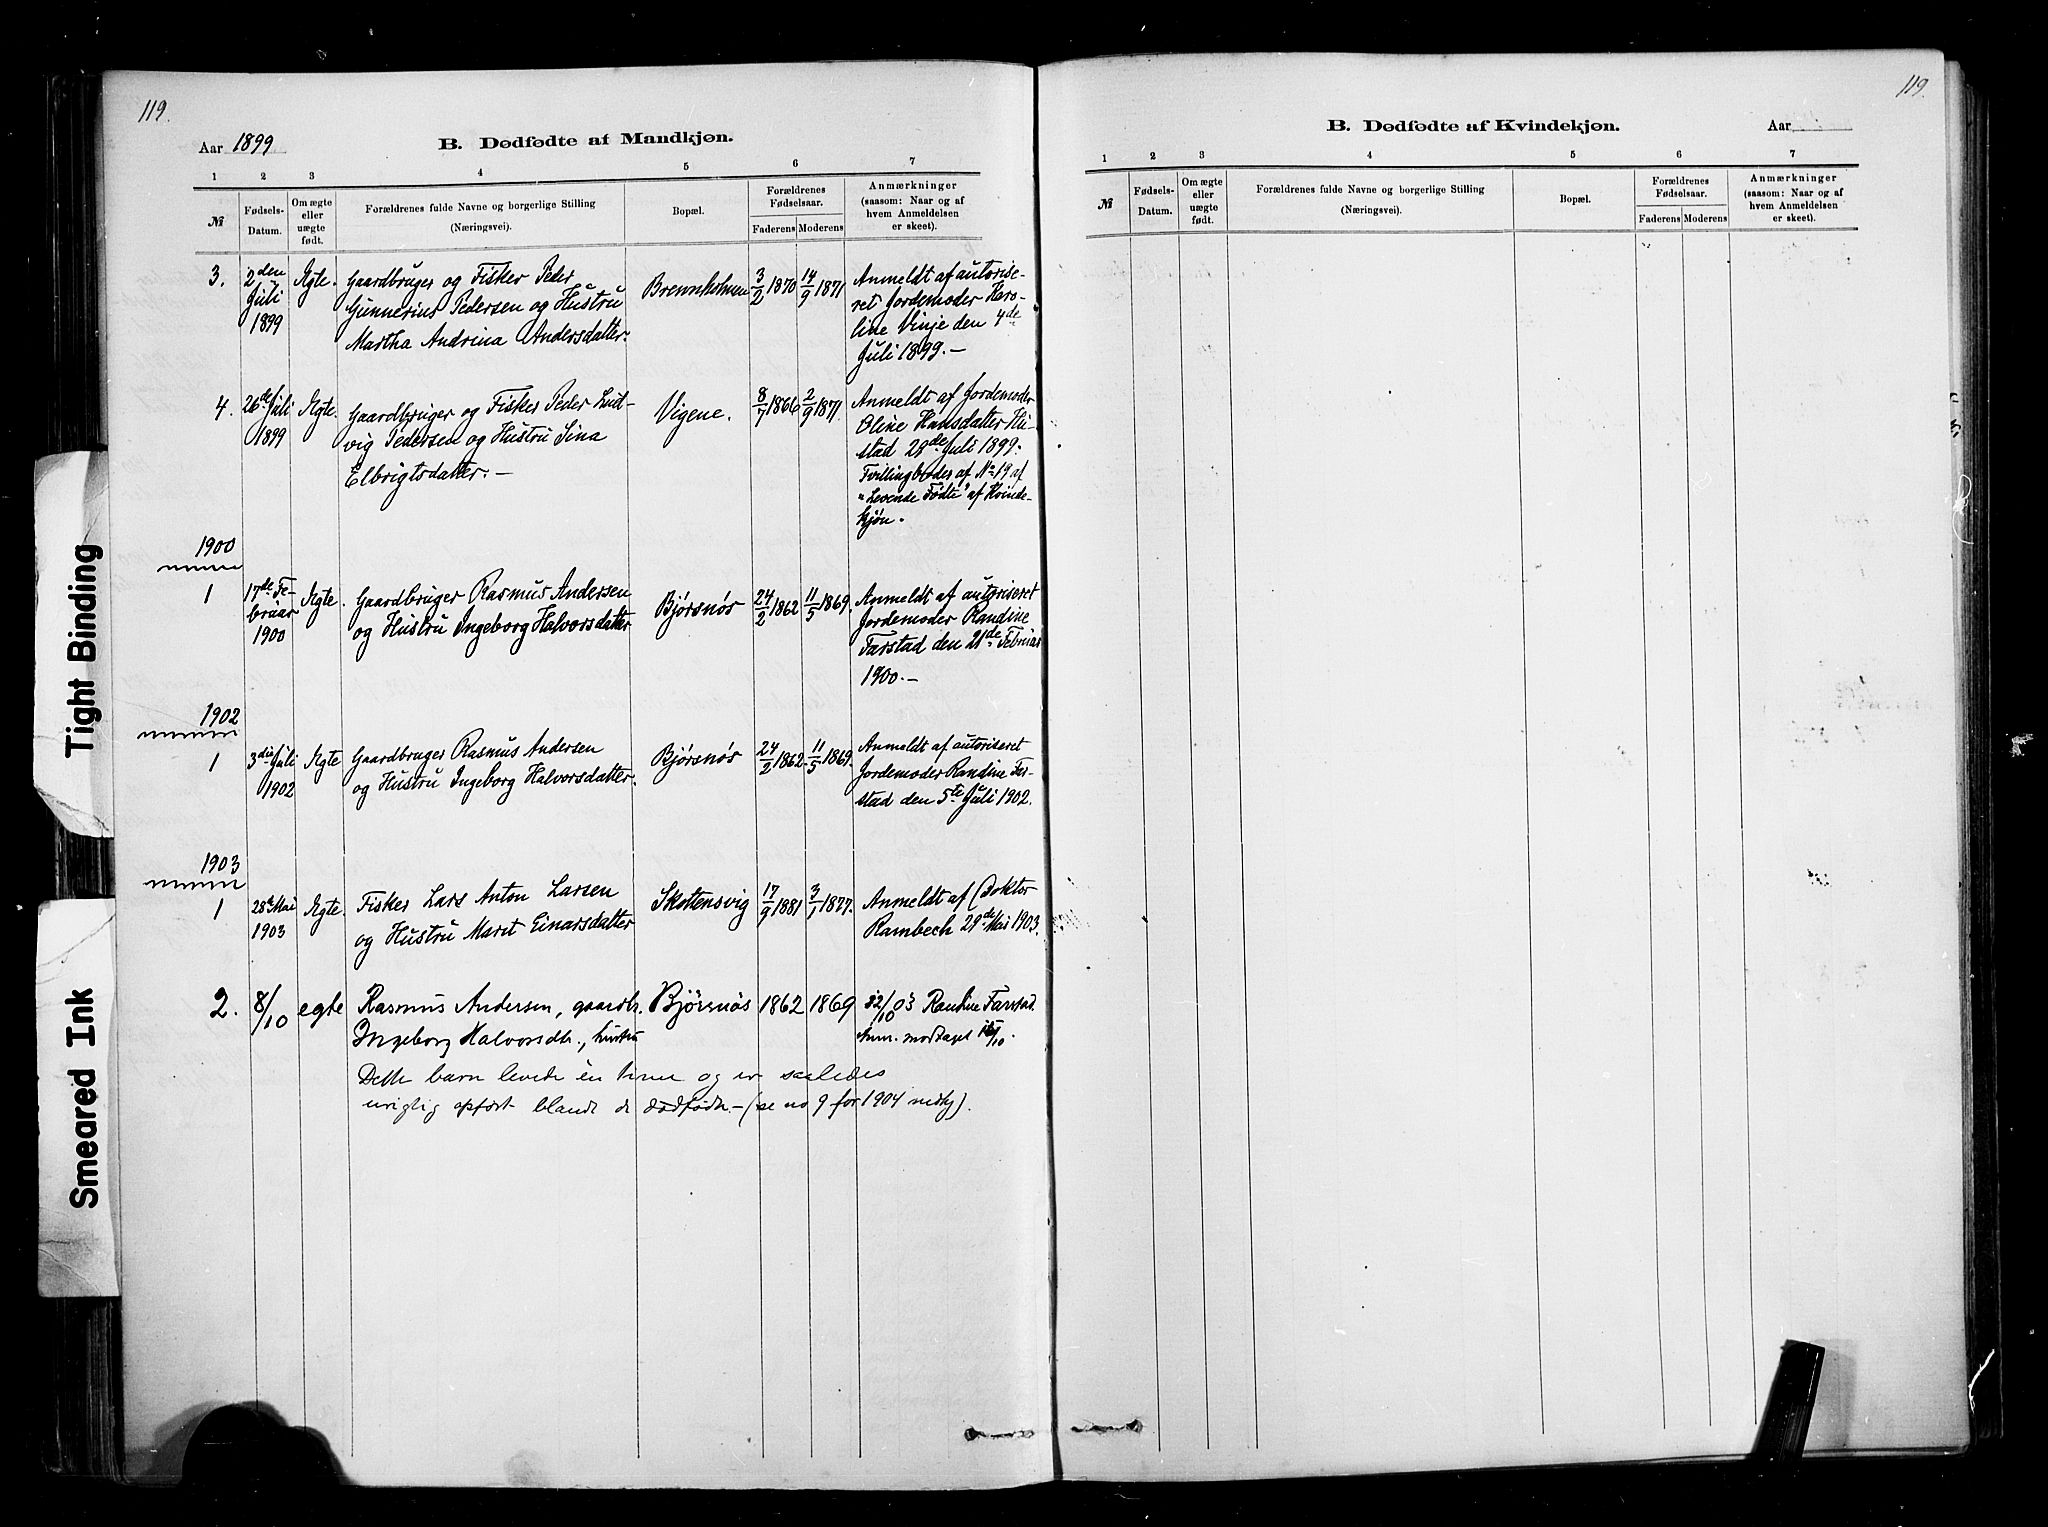 119.
Aar 1899
B. Dødfødte af Mandkjøn.
1 2 3 4 5 6 7
№
Fødsels-
Datum.
Om ægte
eller
uægte
født.
Forældrenes fulde Navne og borgerlige Stilling
(Næringsvei).
Bopæl.
Forældrenes
Fødselsaar.
Faderens Moderens
Anmærkninger
(saasom: Naar og af
hvem Anmeldelsen
er skeet).
3.
2den
Juli
1899
Ægte.
Gaardbruger og Fisker Peder
Gunnerius Pedersen og Hustru
Martha Andrina Andersdatter.
Brennholmen
3/2 1870
14/9 1871
Anmeldt af autorise-
ret Jordemoder Karo-
line Vinje den 4de
Juli 1899.—
4.
26de Juli
1899
Ægte.
Gaardbruger og Fisker Peder Lud-
vig Pedersen og Hustru Sina
Elbrigtsdatter.—
Vigene.
8/7 1866
2/9 1871.
Anmeldt af Jordemoder
Oline Hansdatter Hu-
stad 28de Juli 1899.
Tvillingbroder af No 19 af
"Levende Fødte" af Kvinde-
kjøn.
1900
1
17de Fe-
bruar
1900
Ægte.
Gaardbruger Rasmus Andersen
og Hustru Ingeborg Halvorsdatter
Bjørsnøs
24/2 1862
11/5 1869.
Anmeldt af autoriseret
Jordemoder Randine
Farstad den 21de Februar
1900.—
1902
1
3die Juli
1902
Ægte
Gaardbruger Rasmus Andersen
og Hustru Ingeborg Halvorsdatter.
Bjørsnøs
24/2 1862.
11/5 1869.
Anmeldt af autoriseret
Jordemoder Randine Far-
stad den 5te Juli 1902.
1903
1
28de Mai
1903
Ægte.
Fisker Lars Anton Larsen
og Hustru Marit Einarsdatter
Skottensvig
17/9 1881
3/1 1877.
Anmeldt af Doktor
Rambech 29de Mai 1903.
2.
8/10
egte
Rasmus Andersen, gaardbr.
Ingeborg Halvorsdtr., hustru
Bjørsnøs
1862
1869
12/10 03 Randine Farstad.
Anm. modtaget /10.
Dette barn levede én time og er saaledes
urigtig opført blandt de dødfødte.— (se no 9 for 1904 mdkj).
119.
B. Dødfødte af Kvindekjøn.
Aar
1 2 3 4 5 6 7
№
Fødsels-
Datum.
Om ægte
eller
uægte
født.
Forældrenes fulde Navne og borgerlige Stilling
(Næringsvei).
Bopæl.
Forældrenes
Fødselsaar.
Faderens Moderens
Anmærkninger
(saasom: Naar og af
hvem Anmeldelsen
er skeet).
Tight Binding
Smeared Ink